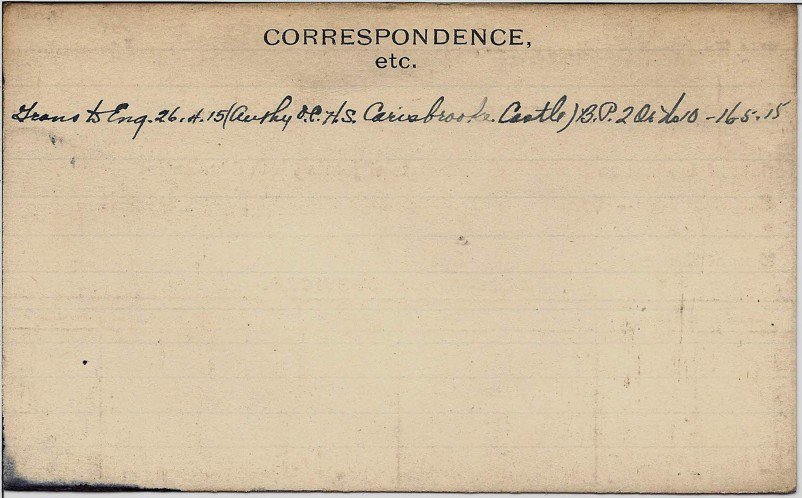 CORRESPONDENCE,
etc.
Trans to Eng. 26.4.15 (Authy O.C. H.S. Carisbrooke Castle) B.P. 2 10 - 16.5.15